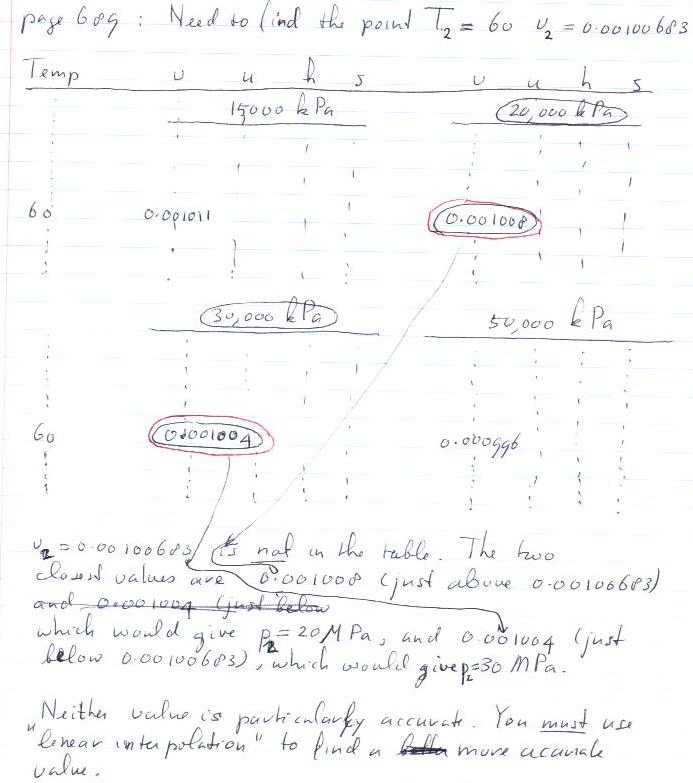 page 689 : Need to find the point T2 = 60 v2 = 0.00100683
Temp v u h s v u h s
15000 kPa 20,000 kPa
60 0.001011 0.001008
30,000 kPa 50,000 kPa
60 0.001004 0.000996
v2 = 0.00100683 is not in the table. The two
closest values are 0.001008 (just above 0.00100683)
and 0.001004 (just below
which would give p2 = 20 MPa, and 0.001004 (just
below 0.00100683), which would give p2=30 MPa.
Neither value is particularly accurate. You must use
"linear interpolation" to find a more acurate
value.